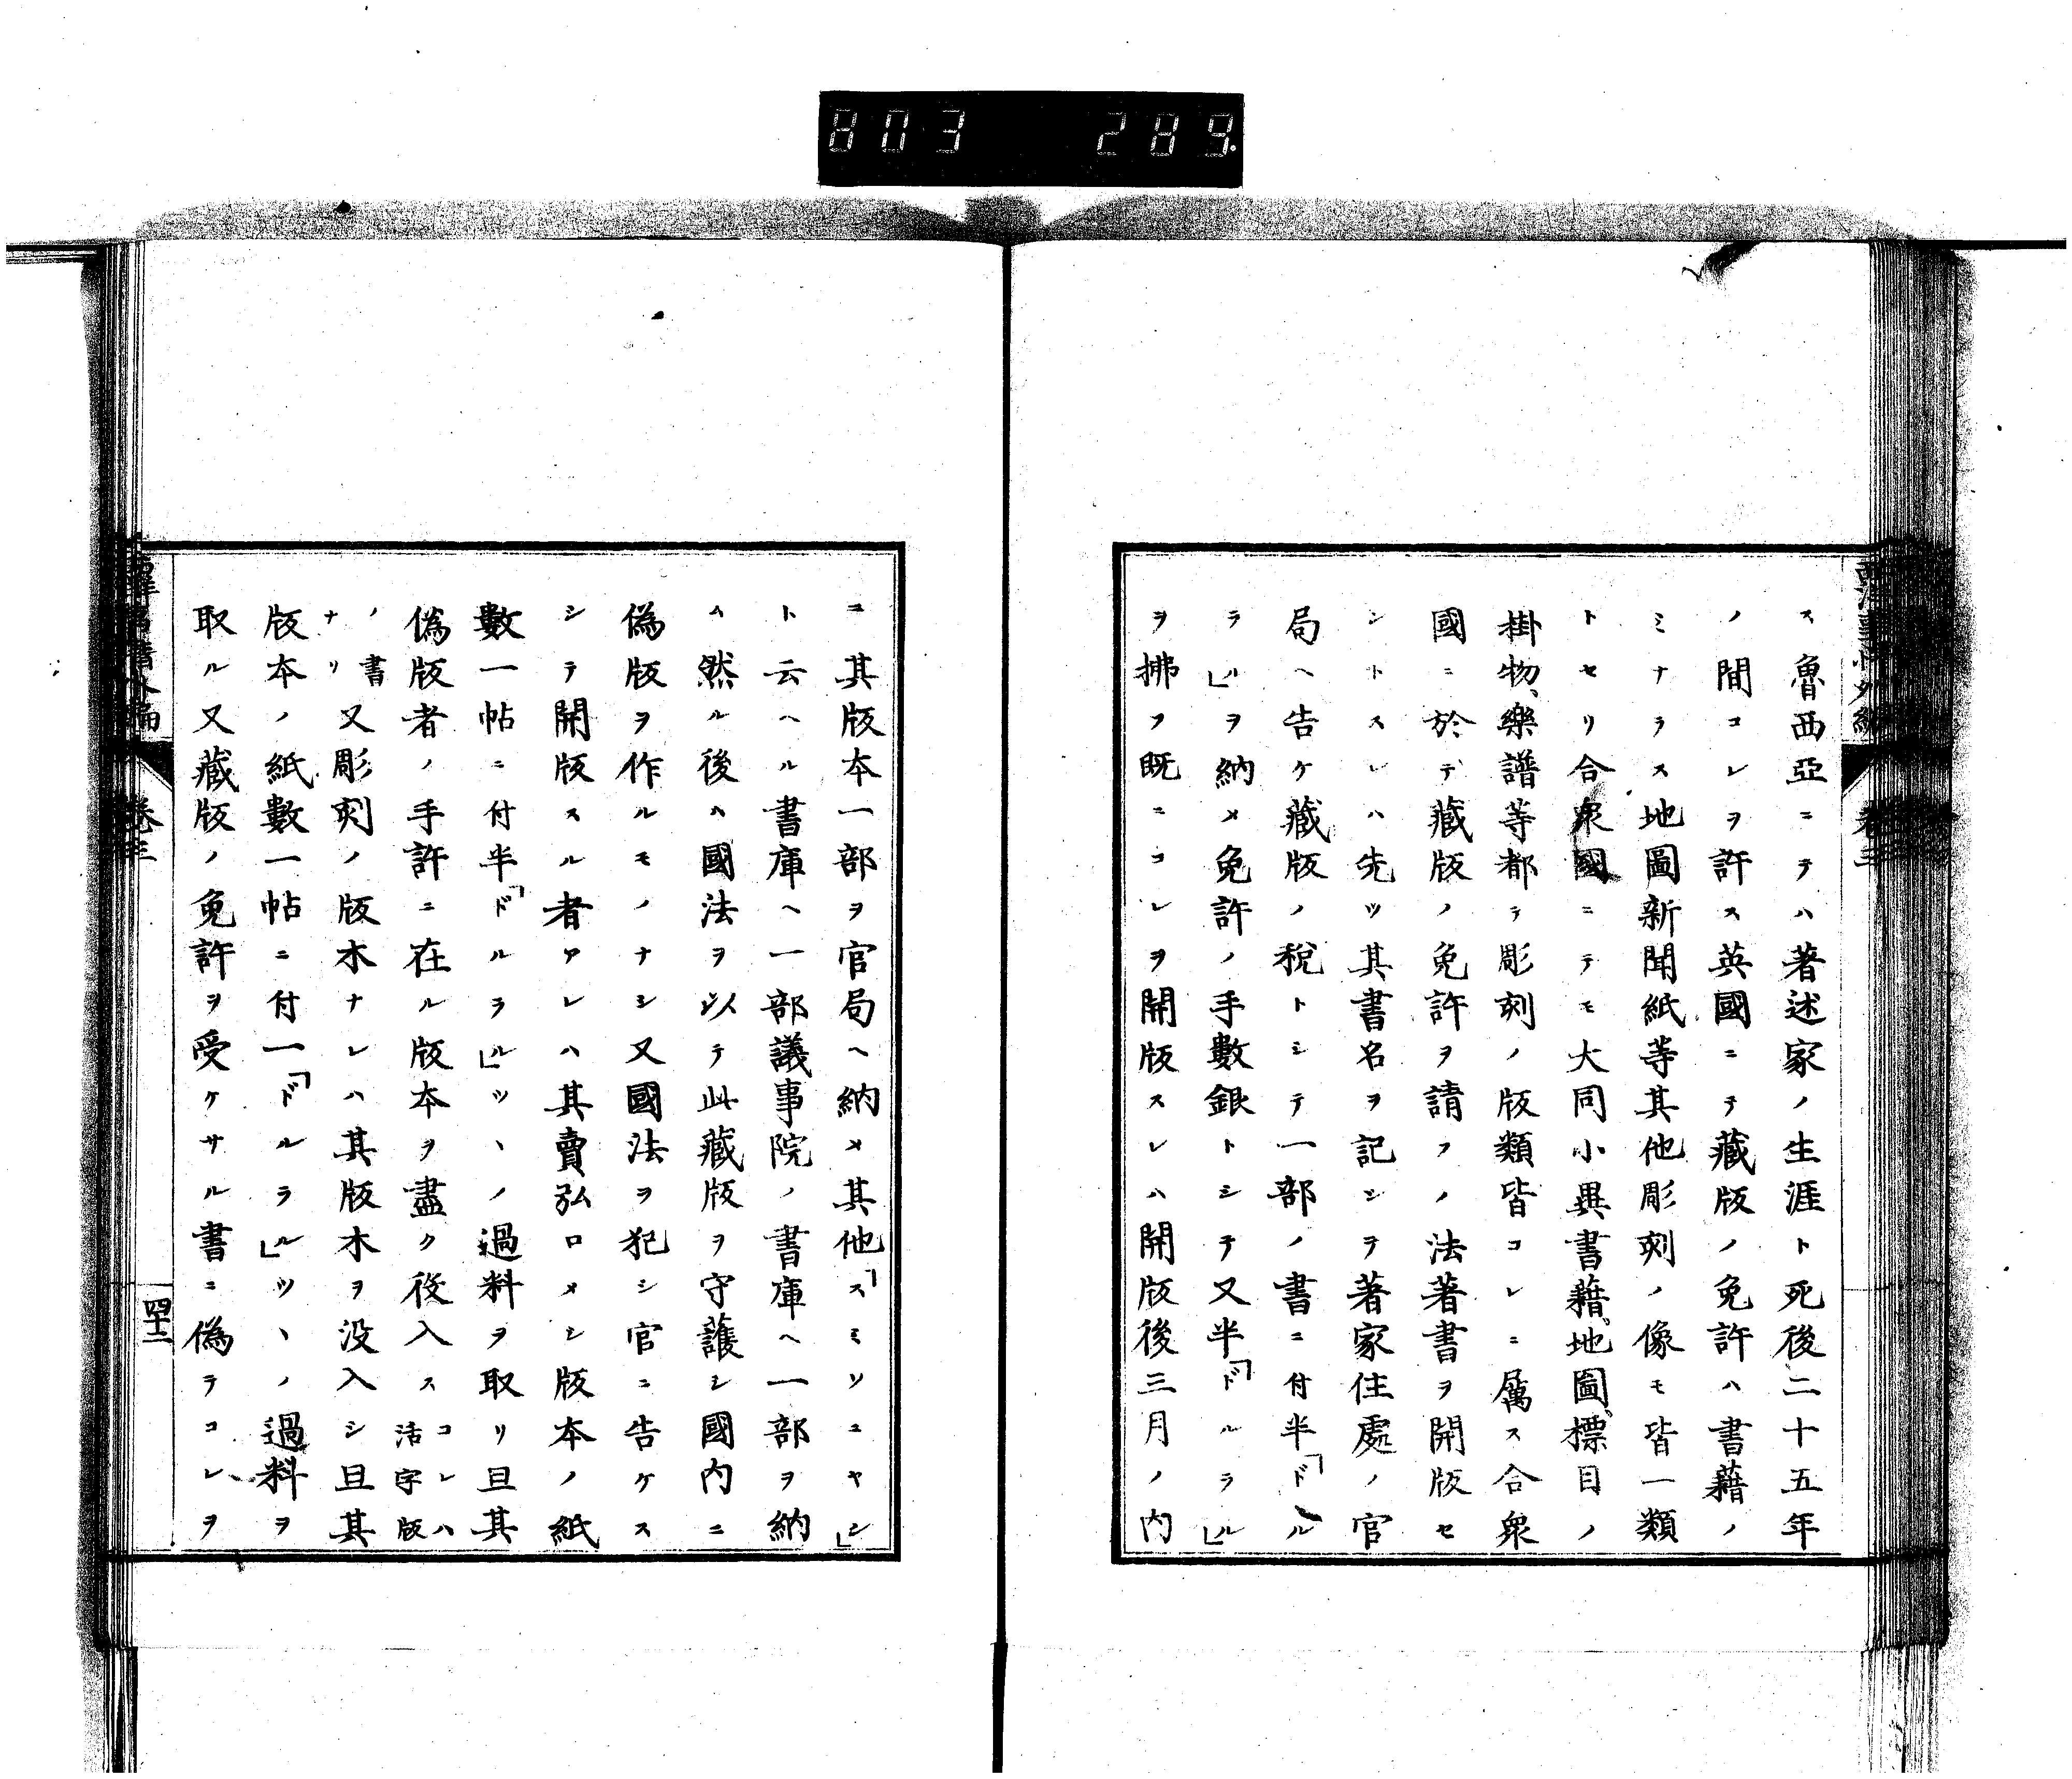 803 289.
ス魯西亞ニテハ著述家ノ生涯ト死後二十五年
ノ間コレヲ許ス英國ニテ藏版ノ免許ハ書藉ノ
ミナラス地圖新聞紙等其他彫刻ノ像モ皆一類
トセリ合衆國ニテモ大同小異書藉、地圖、標目ノ
掛物、樂譜等都テ彫刻ノ版類皆コレニ屬ス合衆
國ニ於テ藏版ノ免許ヲ請フノ法著書ヲ開版セ
シトスレハ先ツ其書名ヲ記シテ著家住處ノ官
局ヘ告ケ藏版ノ稅トシテ一部ノ書ニ付半「ドル
ラル」ヲ納メ免許ノ手數銀トシテ又半「ドルラル」
ヲ拂フ既ニコレヲ開版スレハ開版後三月ノ內
ニ其版本一部ヲ官局ヘ納メ其他「スミソニヤン」
ト云ヘル書庫ヘ一部議事院ノ書庫ヘ一部ヲ納
ハ然ル後ハ國法ヲ以テ此藏版ヲ守護シ國內ニ
偽版ヲ作ルモノナシ又國法ヲ犯シ官ニ告ケス
シテ開版スル者アレハ其賣弘ロメシ版本ノ紙
數一帖ニ付半「ドルラル」ツヽノ過料ヲ取リ且其
偽版者ノ手許ニ在ル版本ヲ盡ク沒入スコレハ活字版
ノ書ナリ又彫刻ノ版木ナレハ其版木ヲ沒入シ且其
版本ノ紙數一帖ニ付一「ドルラル」ツヽノ過料ヲ
取ル又藏版ノ免許ヲ受ケサル書ニ偽テコレヲ
卷三
四十二